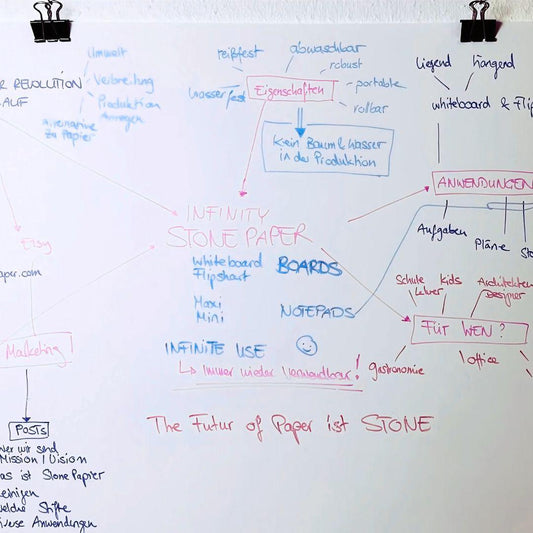 Umwelt
REVOLUTION
AUF
Verbreitung
Produktion
Anregen
Alternative
zu Papier
reißfest
abwaschbar
robust
wasserfest
Eigenschaften
portable
rollbar
Kein Baum & Wasser
in der Produktion
liegend
hängend
whiteboard & Flip
ANWENDUNGEN
Aufgaben
Pläne
Etsy
aper.com
Marketing
POSTS
wer wir sind
Mission / Vision
as ist StonePapier
einigen
welche Stifte
iverse Anwendungen
INFINITY
STONE PAPER
Whiteboard
Flipchart
BOARDS
Maxi
Mini
NOTEPADS
INFINITE USE
↳ Immer wieder verwendbar!
Schule
Lehrer
Kids
Architekten
Designer
FÜR WEN?
gastronomie
office
The Futur of Paper ist STONE